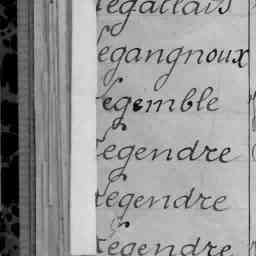 Legallais
Legangnoux
Legemble
Legendre
Legendre
Legendre